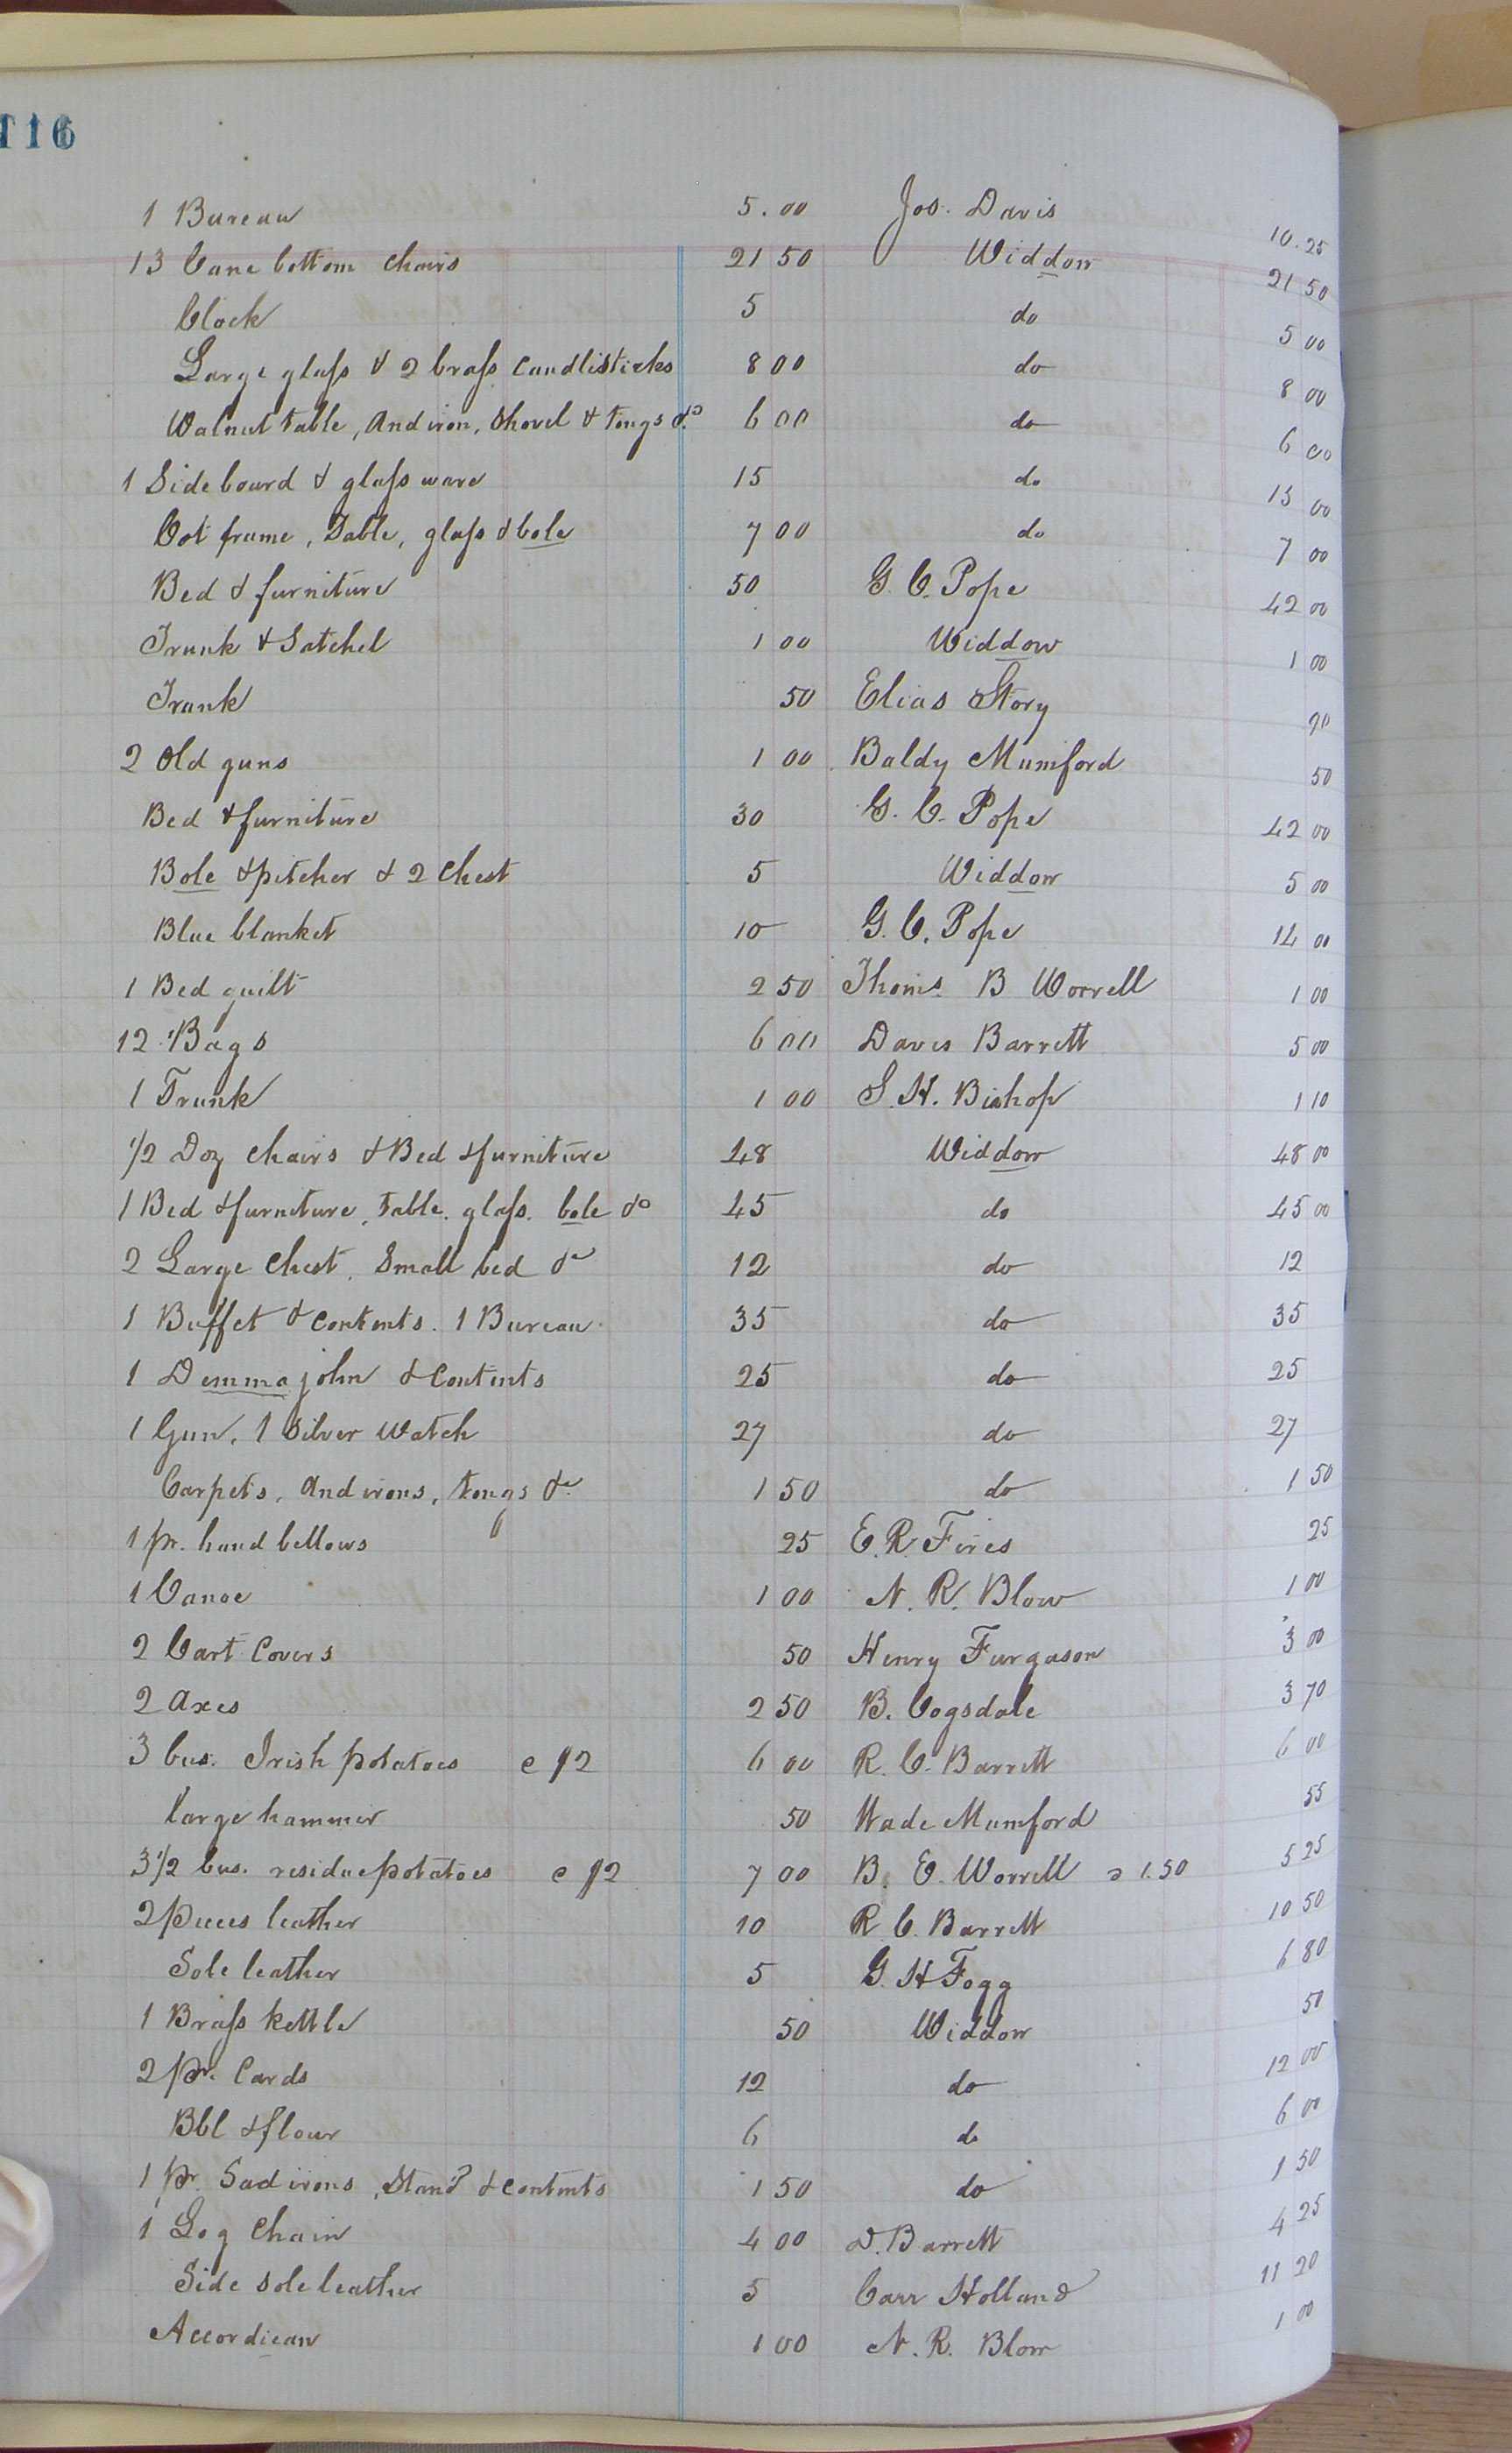 116
1 Bureau 5.00 Jos. Davis 10.25
13 Cane bottom chairs 21 50 Widdow 21 50
Clock 5 do 5 00
Large glass & 2 brass candlisticks 8 00 do 8 00
Walnut table, Andiron, Shovel & tongs &c 6 00 do 6 00
1 Sideboard & glass ware 15 do 15 00
Cot frame, Table, glass & bole 7 00 do 7 00
Bed & furniture 50 G. C. Pope 42 00
Trunk & Satchel 1 00 Widdow 1 00
Trunk 50 Elias Story 90
2 Old guns 1 00 Baldy Mumford 50
Bed & furniture 30 G. C. Pope 42 00
Bole & pitcher & 2 Chest 5 Widdow 5 00
Blue blanket 10 G. C. Pope 14 00
1 Bed quilt 2 50 Thoms. B Worrell 1 00
12 Bags 6 00 Davis Barrett 5 00
1 Trunk 1 00 S. H. Bishop 1 10
1/2 Doz chairs & Bed & furniture 48 Widdow 48 00
1 Bed & furniture, table. glass. bole &c 45 do 45 00
2 Large Chest, Small bed &c 12 do 12
1 Buffet & contents. 1 Bureau 35 do 35
1 Demmajohn & contents 25 do 25
1 Gun, 1 Silver Watch 27 do 27
Carpets, Andirons, tongs &c 1 50 do 1 50
1 pr. hand bellows 25 E. R. Fires 25
1 Canoe 1 00 N. R. Blow 1 00
2 Cart Covers 50 Henry Furgason 3 00
2 Axes 2 50 B. Cogsdale 3 70
3 bus. Irish potatoes @ $2 6 00 R. C. Barrett 6 00
large hammer 50 Wade Mumford 55
3 1/2 bus. residue potatoes @ $2 7 00 B. E. Worrell @ 1.50 5 25
2 pieces leather 10 R. C. Barrett 10 50
Sole leather 5 G. H Fogg 6 80
1 Brass kettle 50 Widdow 50
2 pr. Cards 12 do 12 00
Bbl & flour 6 do 6 00
1 pr. Sad irons, Stand & contents 1 50 do 1 50
1 Log Chain 4 00 D. Barrett 4 25
Side sole leather 5 Carr Holland 11 20
Accordiean 1 00 N. R. Blow 1 00